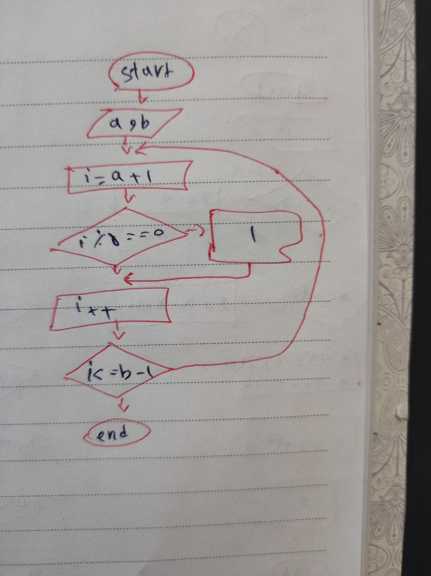 start
a, b
i = a + 1
i % 8 == 0
i
i++
i <= b - 1
end